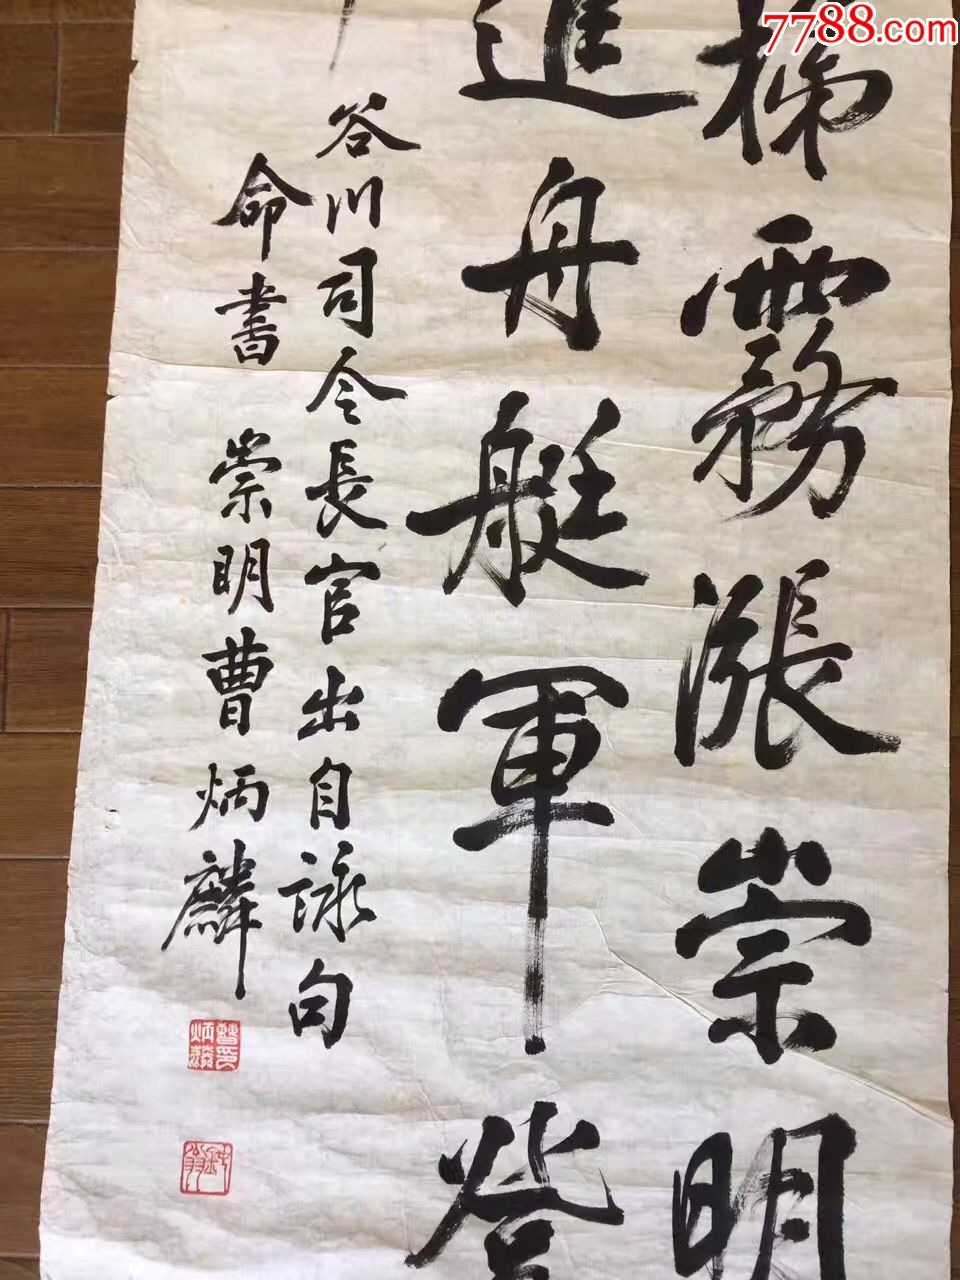 7788.com
梯霧漲崇明
進舟艇軍登
谷川司令長官出自詠句
命書 崇明曹炳麟
曹炳麟印